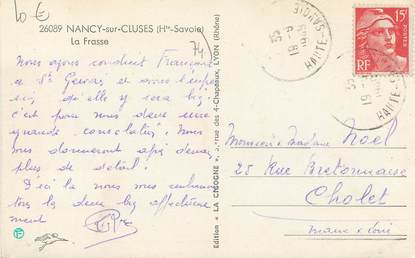 10 €
26089 NANCY-sur-CLUSES (Hte-Savoie)
La Frasse
74
Nous avons conduit
à St Gervais et avons
qu'elle y sera bien
c'est pour nous deux une
grande consolation. Nous
vous donnerons
plus de détail.
D'ici là nous vous
tous les deux bien affectueuse
ment
Edition « LA CIGOGNE », rue des 4-Chapeaux, LYON (Rhône)
HAUTE-SAVOIE
15F
RF
HAUTE-SAVOIE
Monsieur Madame Noël
25 Rue Bretonnaise
Cholet
Maine & Loire